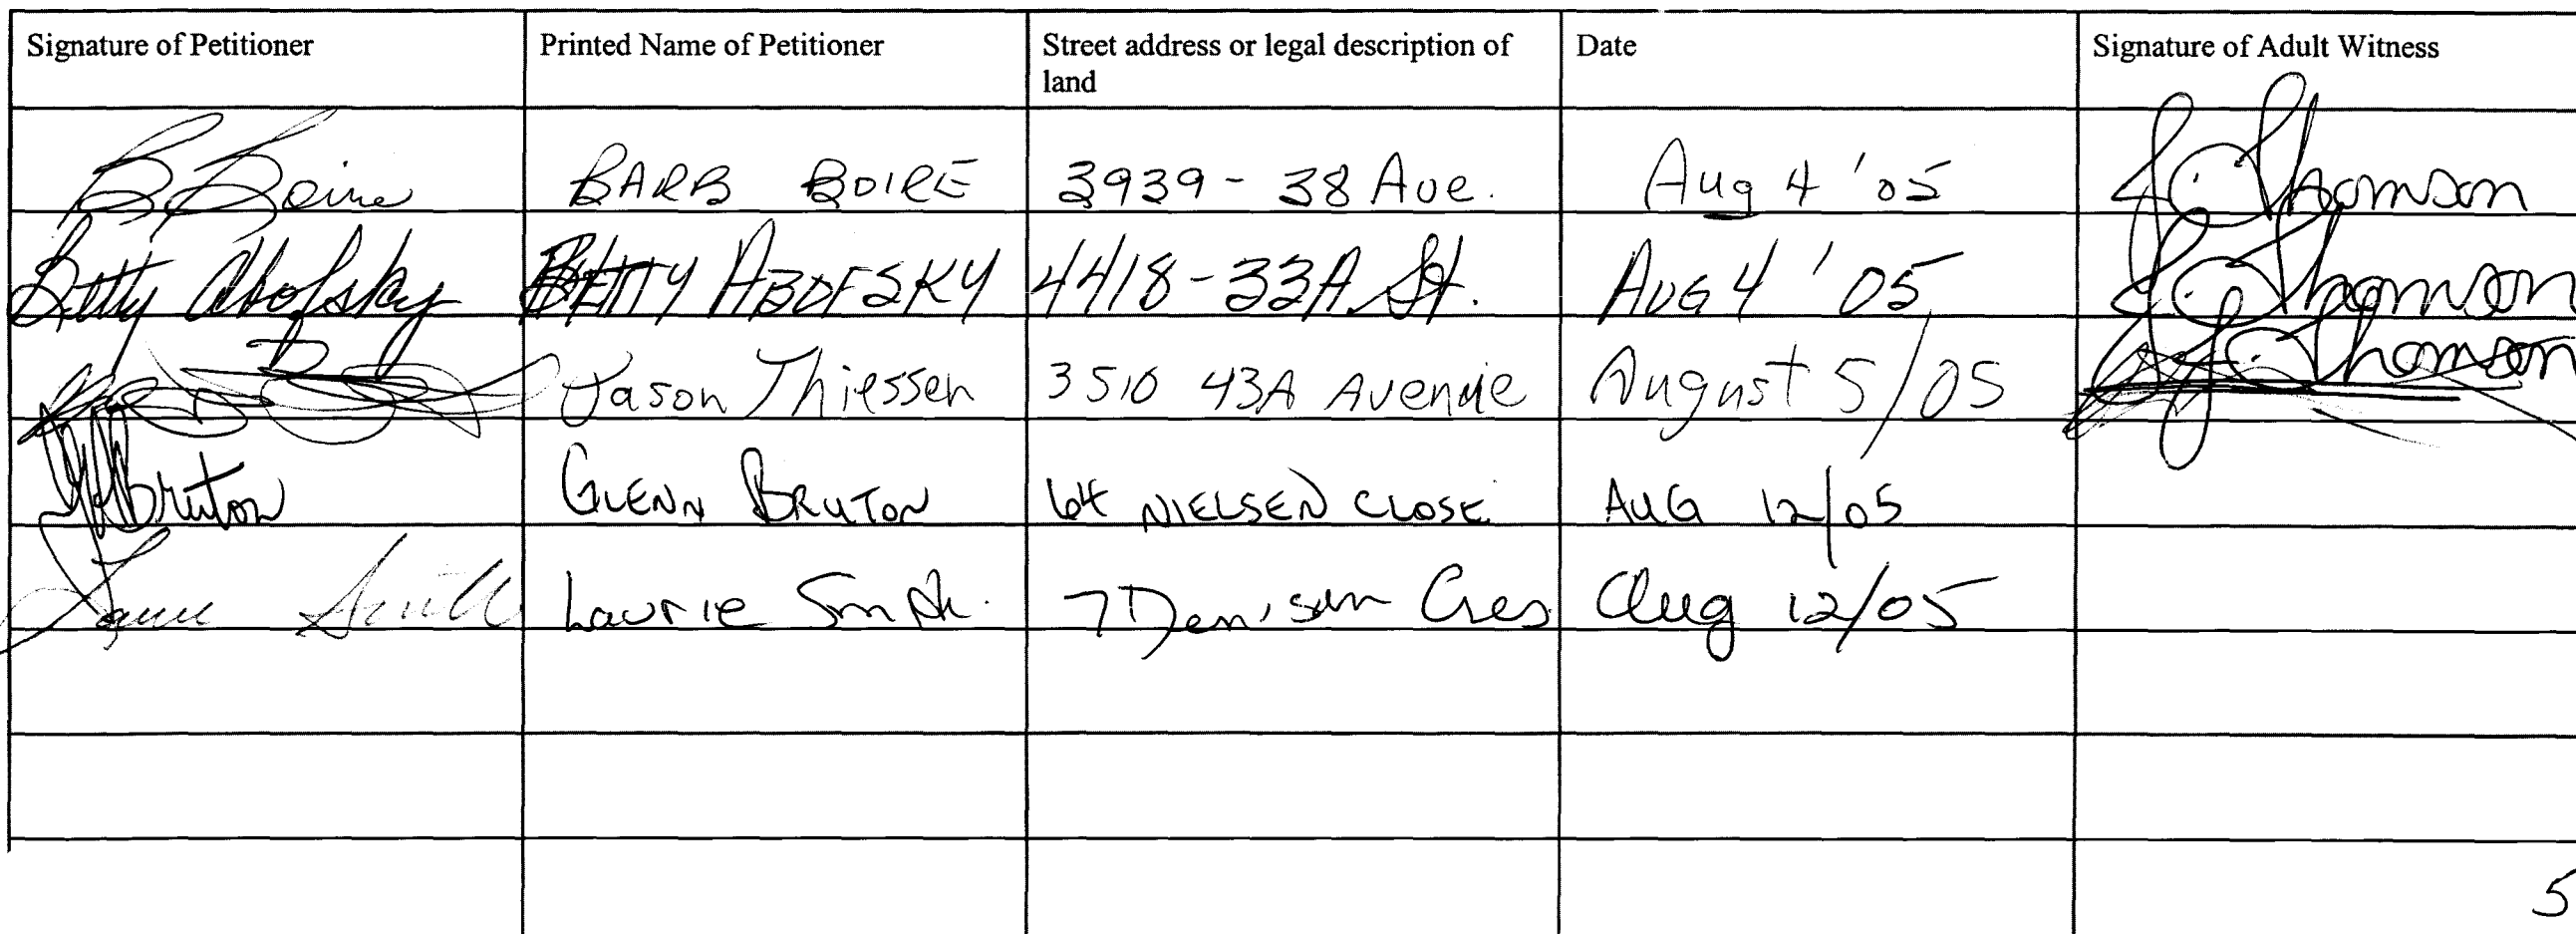 Signature of Petitioner Printed Name of Petitioner Street address or legal description of land Date Signature of Adult Witness
B Boire BARB BOIRE 3939 - 38 Ave. Aug 4 '05 Thomson
Betty Abofsky BETTY ABOFSKY 4418-33A St. AUG 4 '05 Thomson
Jason Thiessen 3510 43A Avenue August 5/05 Thomson
Bruton GLENN BRUTON 64 NIELSEN CLOSE AUG 12/05
Laurie Smith Laurie Smith 7 Denison Cres Aug 12/05
5